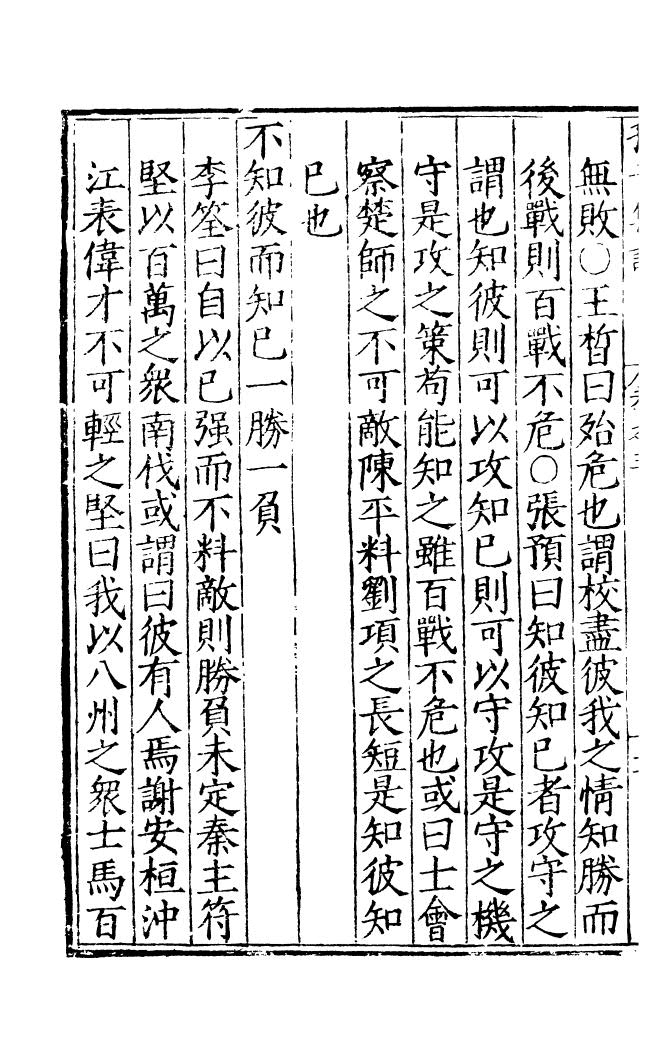 無敗○王晳曰殆危也謂校盡彼我之情知勝而
後戰則百戰不危○張預曰知彼知已者攻守之
謂也知彼則可以攻知已則可以守攻是守之機
守是攻之策茍能知之雖百戰不危也或曰士會
察楚師之不可敵陳平料劉項之長短是知彼知
已也
不知彼而知已一勝一負
李筌曰自以已强而不料敵則勝負未定秦主符
堅以百萬之衆南伐或謂曰彼有人焉謝安桓沖
江表偉才不可輕之堅曰我以八州之衆士馬百